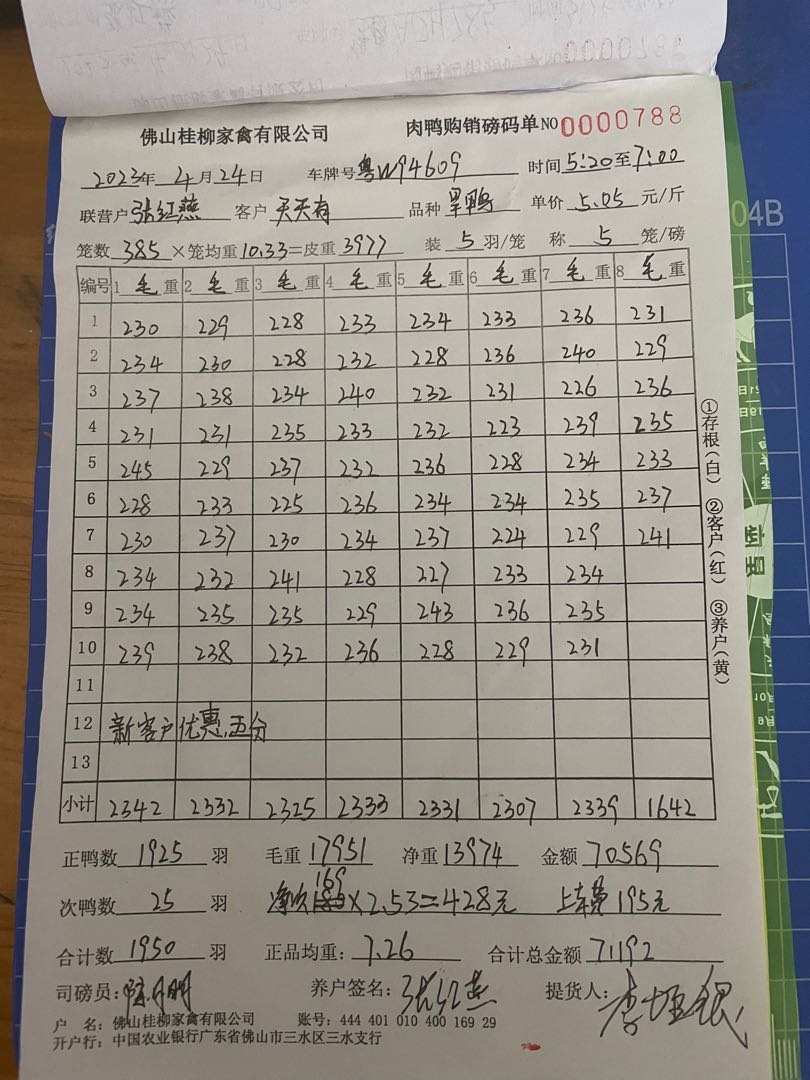 佛山桂柳家禽有限公司 肉鸭购销磅码单 NO 0000788
2023年 4月24日 车牌号 粤W94609 时间 5:20至7:00
联营户 张红燕 客户 天天有 品种 旱鸭 单价 5.05 元/斤
笼数 385 ×笼均重 10.33=皮重 3977 装 5 羽/笼 称 5 笼/磅
编号 1 毛 重 2 毛 重 3 毛 重 4 毛 重 5 毛 重 6 毛 重 7 毛 重 8 毛 重
1 230 229 228 233 234 233 236 231
2 234 230 228 232 228 236 240 229
3 237 238 234 240 232 231 226 236
4 231 231 235 233 232 223 239 235
5 245 229 237 232 236 228 234 233
6 228 233 225 236 234 234 235 237
7 230 237 230 234 237 224 229 241
8 234 232 241 228 227 233 234
9 234 235 235 229 243 236 235
10 239 238 232 236 228 229 231
11
12 新客户优惠五分
13
小计 2342 2332 2325 2333 2331 2307 2339 1642
①存根(白) ②客户(红) ③养户(黄)
正鸭数 1925 羽 毛重 17951 净重 13974 金额 70569
次鸭数 25 羽 169 ×2.53=428元 上车费195元
合计数 1950 羽 正品均重: 7.26 合计总金额 71192
司磅员: 养户签名: 张红燕 提货人:
户 名: 佛山桂柳家禽有限公司 账号: 444 401 010 400 169 29
开户行: 中国农业银行广东省佛山市三水区三水支行
04B